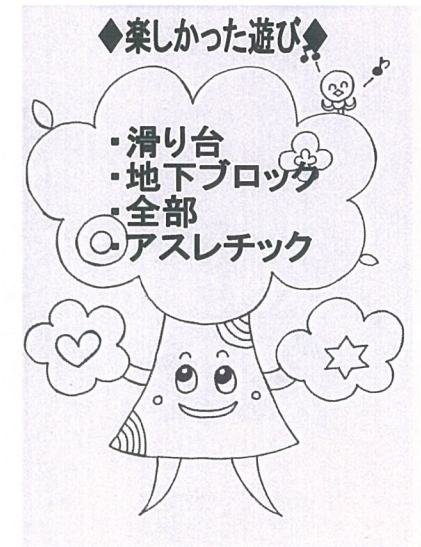 ◆楽しかった遊び◆
・滑り台
・地下ブロック
・全部
・アスレチック